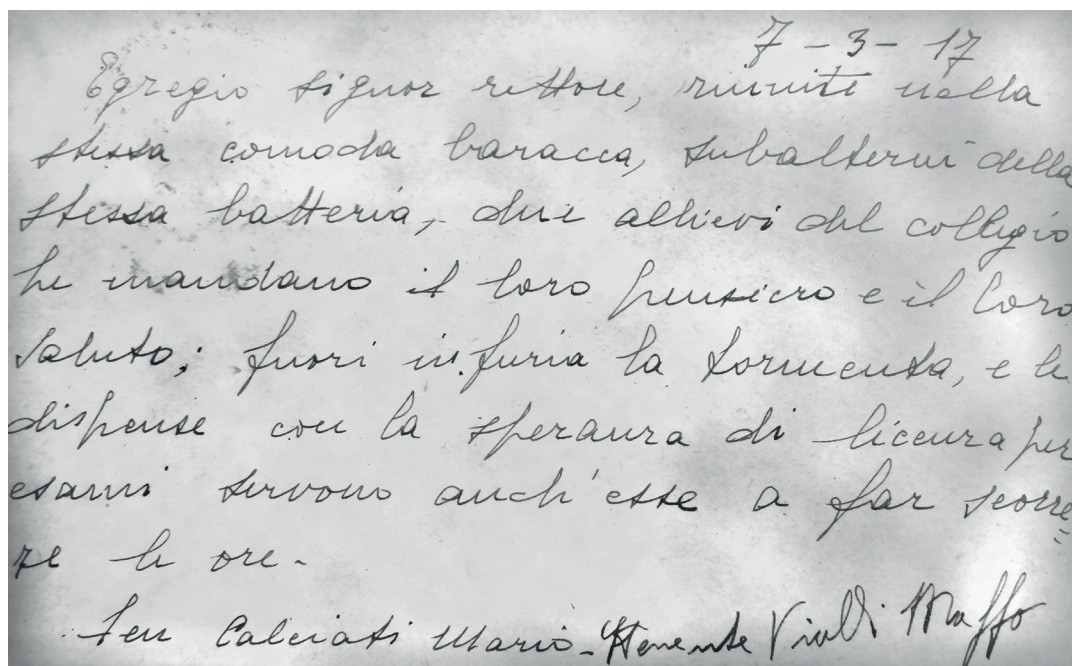 7-3-17
Egregio signor rettore, riuniti nella
stessa comoda baracca, subalterni della
stessa batteria, due allievi del collegio
le mandano il loro pensiero e il loro
saluto; fuori infuria la tormenta, e le
dispense con la speranza di licenza per
esami servono anch'esse a far scorre=
re le ore.
Ten Calciati Mario - Stenente Vialli Maffo